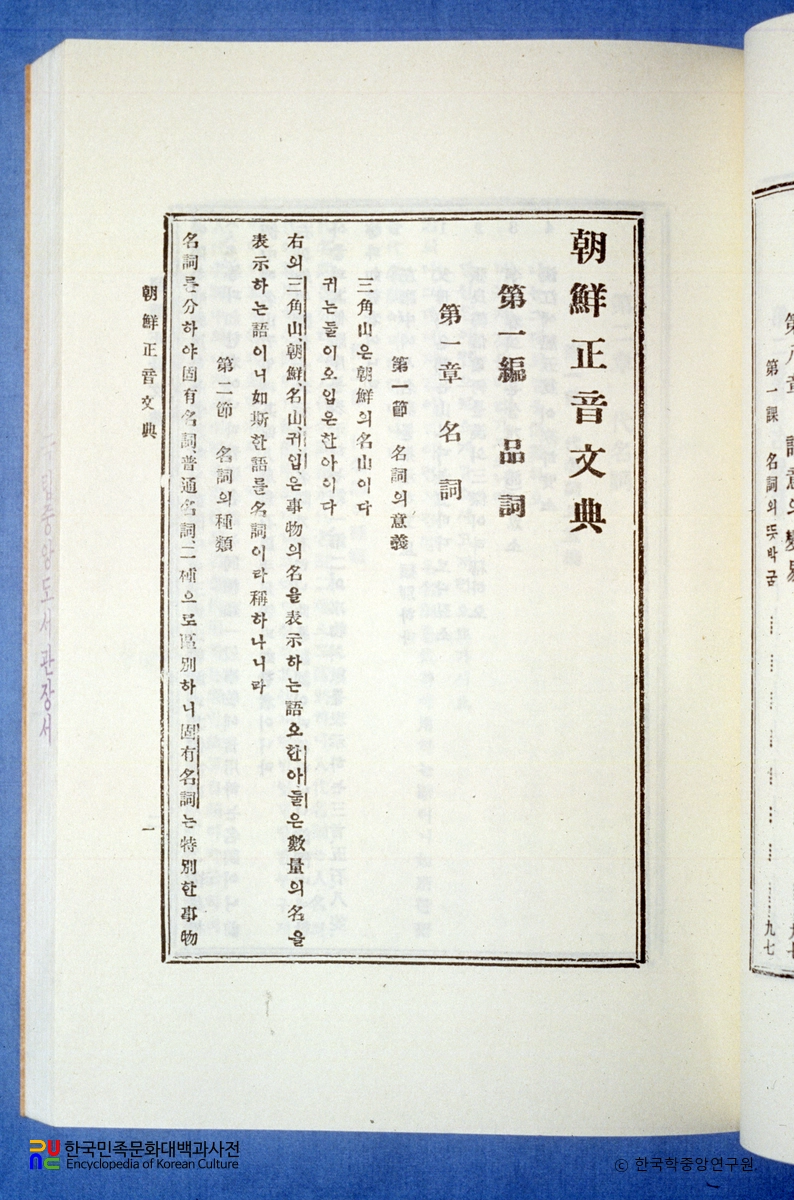 朝鮮正音文典
第一編 品詞
第一章 名詞
第一節 名詞의意義
三角山은朝鮮의名山이다
귀는둘이오입은한아이다
右의三角山、朝鮮、名山、귀、입、은事物의名을表示하는語오한아、둘은數量의名을
表示하는語이니如斯한語를名詞이라稱하나니라
第二節 名詞의種類
名詞를分하야固有名詞、普通名詞、二種으로區別하니固有名詞는特別한事物
朝鮮正音文典
一
第八章
第一課 名詞의뜻박굼 九七
립중앙도서관장서
한국민족문화대백과사전
Encyclopedia of Korean Culture
© 한국학중앙연구원